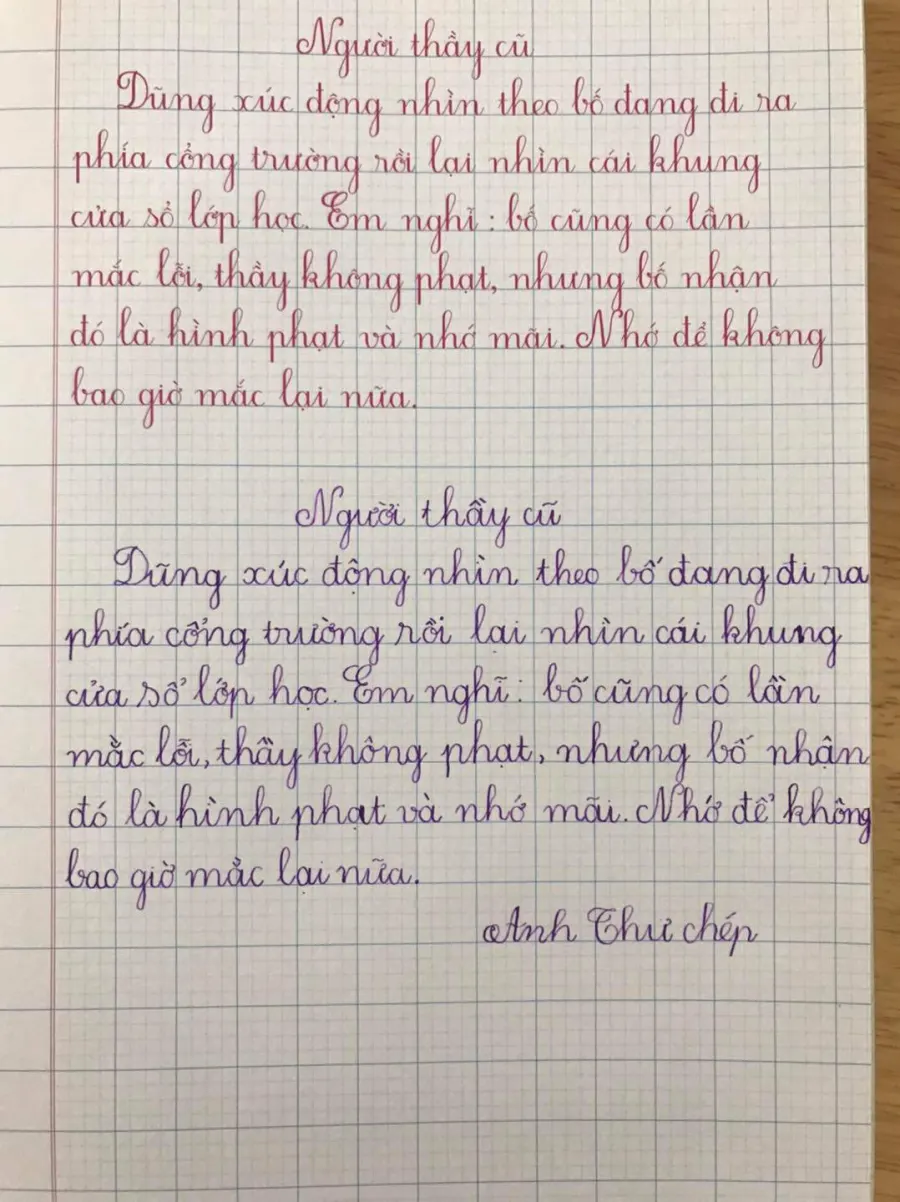 Người thầy cũ
Dũng xúc động nhìn theo bố đang đi ra
phía cổng trường rồi lại nhìn cái khung
cửa sổ lớp học. Em nghĩ: bố cũng có lần
mắc lỗi, thầy không phạt, nhưng bố nhận
đó là hình phạt và nhớ mãi. Nhớ để không
bao giờ mắc lại nữa.
Người thầy cũ
Dũng xúc động nhìn theo bố đang đi ra
phía cổng trường rồi lại nhìn cái khung
cửa sổ lớp học. Em nghĩ: bố cũng có lần
mắc lỗi, thầy không phạt, nhưng bố nhận
đó là hình phạt và nhớ mãi. Nhớ để không
bao giờ mắc lại nữa.
Anh Thư chép